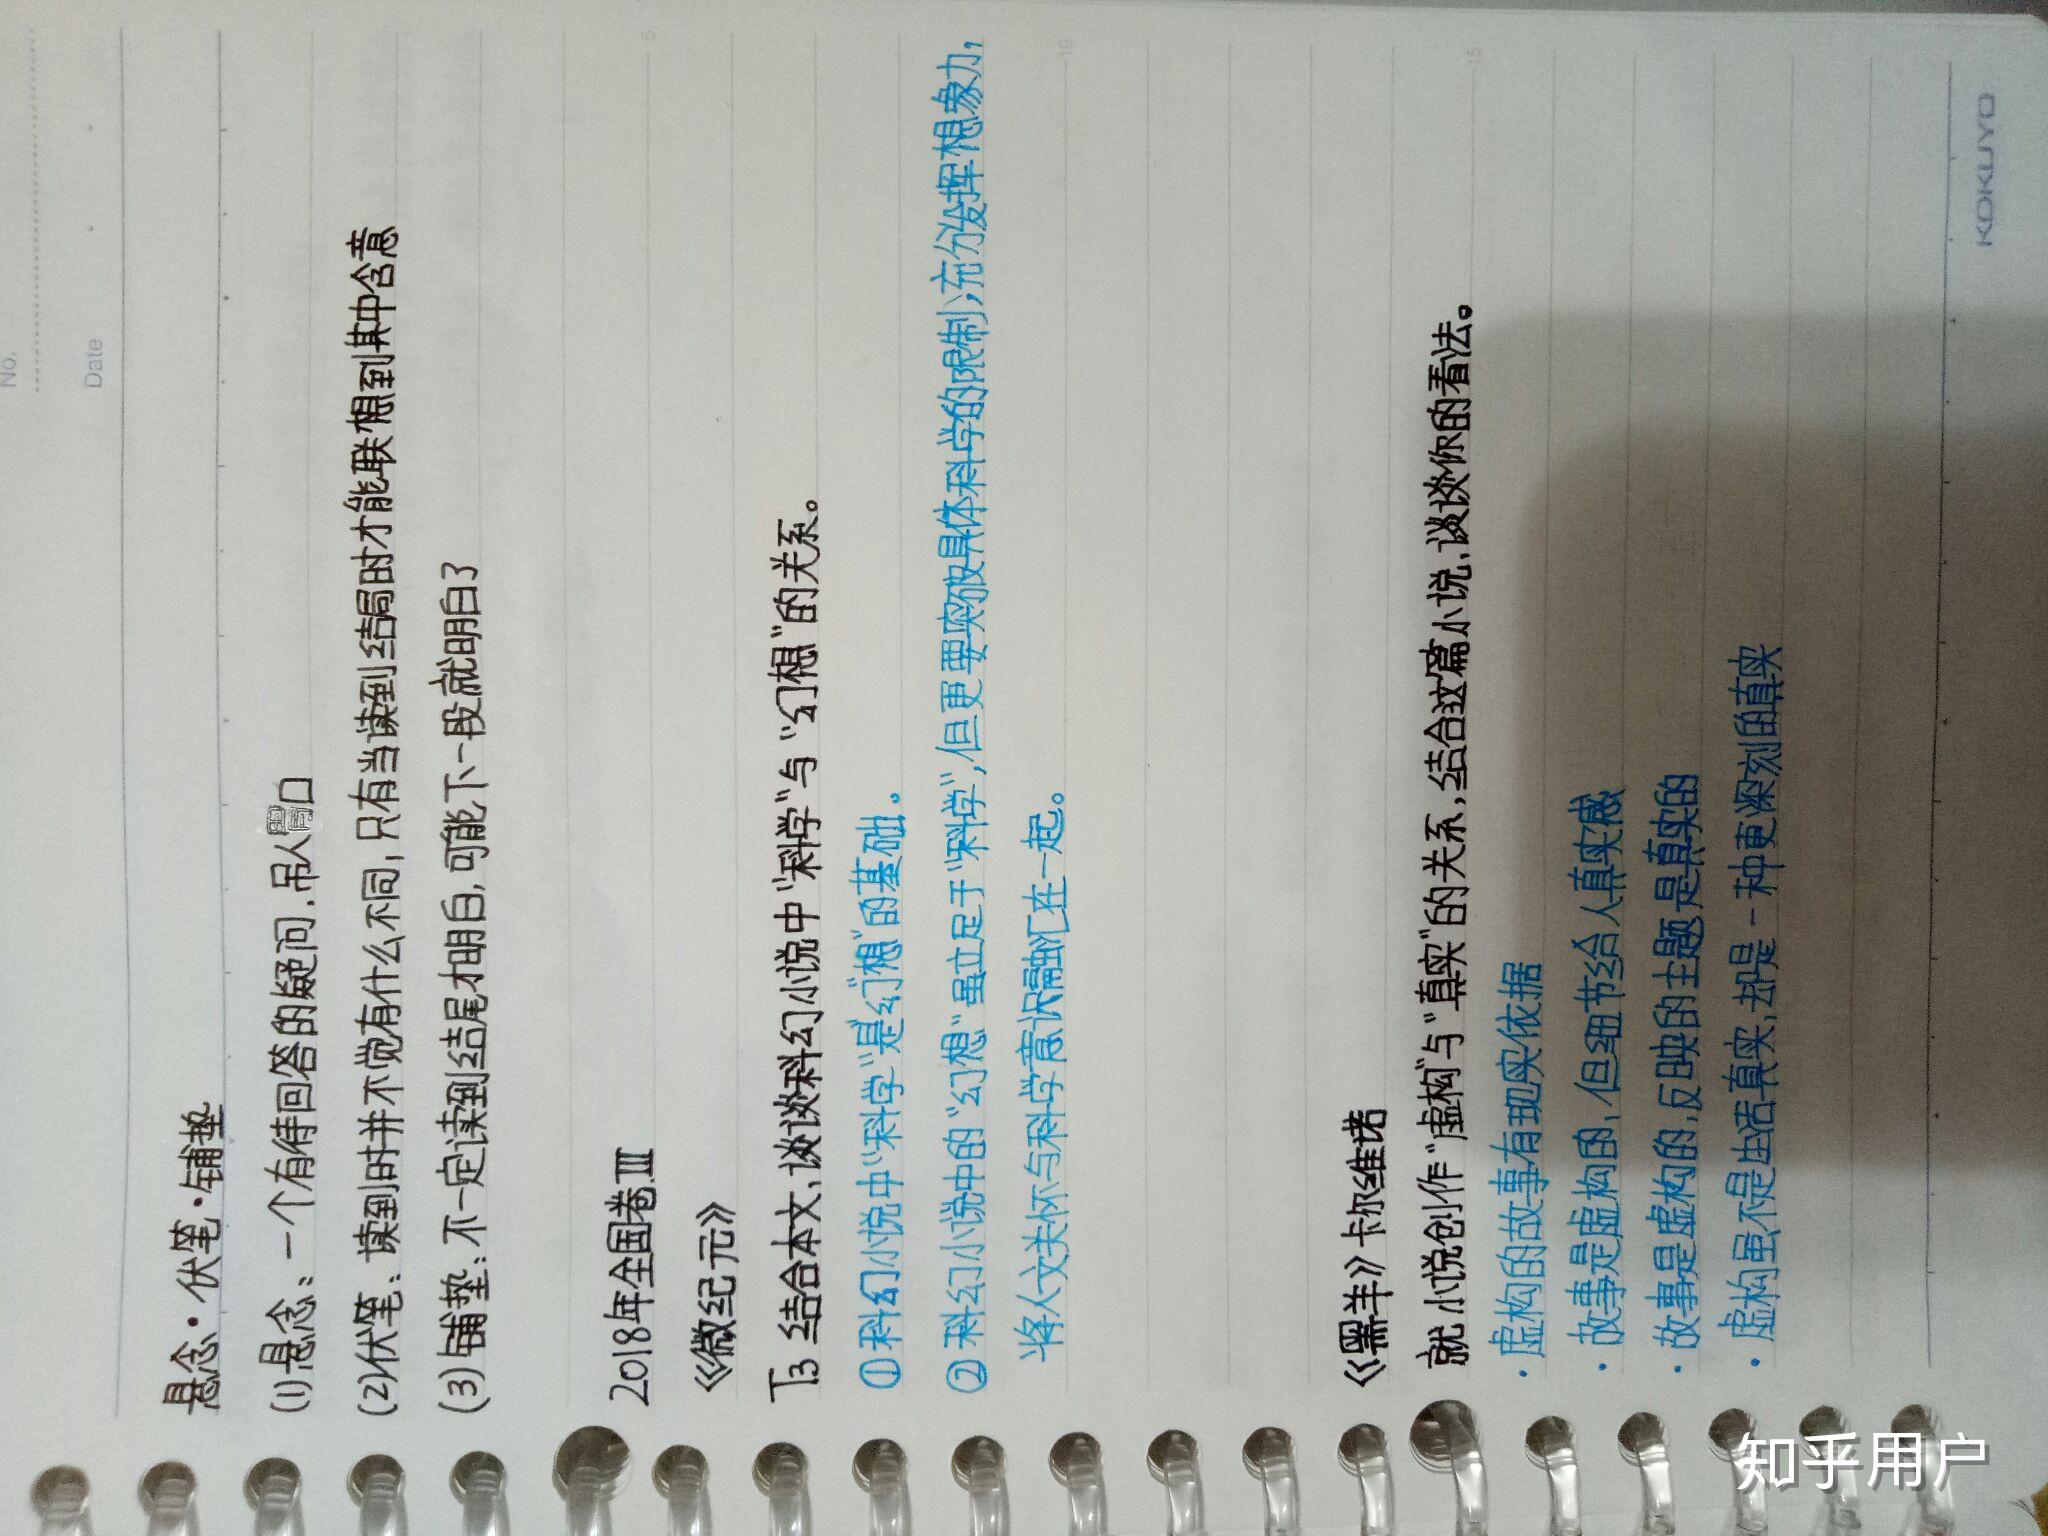 No.
Date
悬念·伏笔·铺垫
(1)悬念：一个有待回答的疑问，吊人胃口
(2)伏笔：读到时并不觉有什么不同，只有当读到结局时才能联想到其中含意
(3)铺垫：不一定读到结尾才明白，可能下一段就明白了
2018年全国卷Ⅲ
5
《微纪元》
T3 结合本文，谈谈科幻小说中“科学”与“幻想”的关系。
①科幻小说中“科学”是幻“想”的基础。
②科幻小说中的“幻想”虽立足于“科学”，但更要突破具体科学的限制；充分发挥想象力，
将人文关怀与科学意识融汇在一起。
10
《黑羊》卡尔维诺
就小说创作“虚构”与“真实”的关系，结合这篇小说，谈谈你的看法。
15
·虚构的故事有现实依据
·故事是虚构的，但细节给人真实感
·故事是虚构的，反映的主题是真实的
·虚构虽不是生活真实，却是一种更深刻的真实
KOKUYO
知乎用户